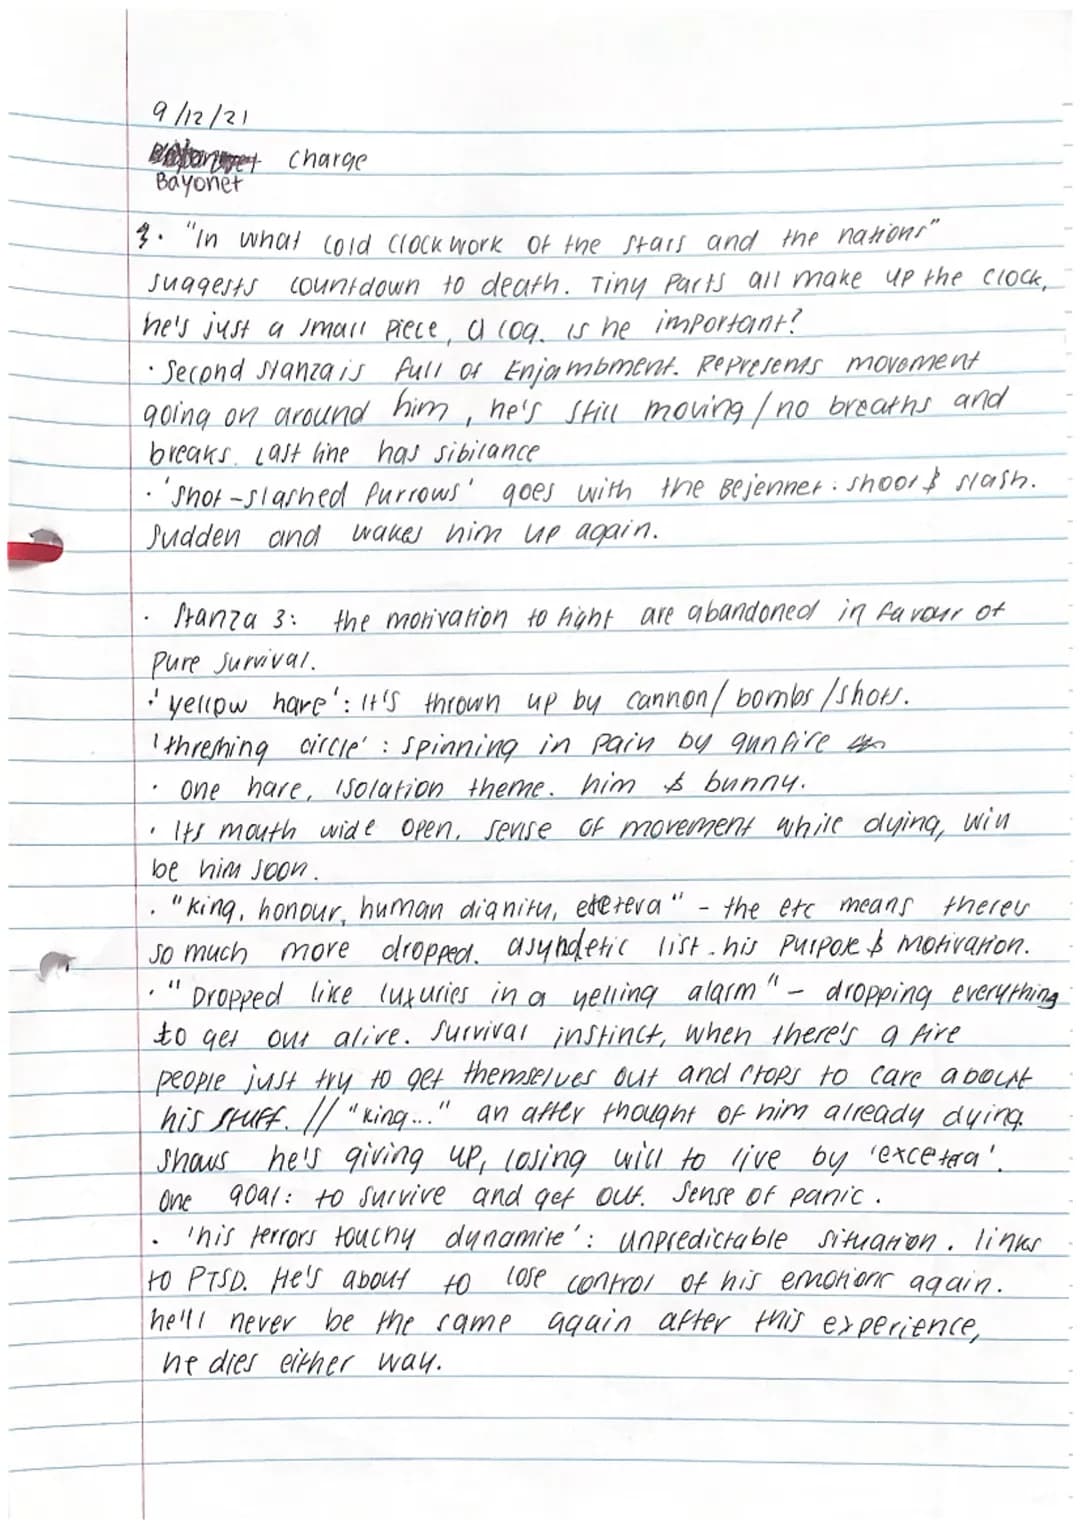 9/12/21
charge
Bayonet
3. "In what cold clockwork of the stars and the nations"
suggests countdown to death. Tiny parts all make up the clock,
he's just a small piece, a cog. is he important?
· Second stanza is full of Enjambment. Represents movement
going on around him, he's still moving / no breaths and
breaks. Last line has sibilance
· 'Shot-slashed furrows' goes with the Bejennet: shoot & slash.
Sudden and wakes him up again.
· Stanza 3: the motivation to fight are abandoned in favour of
pure survival.
· 'yellow hare': It's thrown up by cannon/ bombs /shots.
'threshing circle' : spinning in pain by gunfire
· one hare, isolation theme. him & bunny.
· Its mouth wide open, sense of movement while dying, will
be him soon.
· "King, honour, human dignity, etcetera" - the etc means theres
so much more dropped. asyndetic list. his purpose & motivation.
· "Dropped like luxuries in a yelling alarm" - dropping everything
to get out alive. Survival instinct, when there's a fire
people just try to get themselves out and stops to care about
his stuff. // "king..." an after thought of him already dying.
Shows he's giving up, losing will to live by 'excetera'.
One goal: to survive and get out. Sense of panic.
· 'his terrors touchy dynamite': unpredictable situation. links
to PTSD. He's about to lose control of his emotions again.
he'll never be the same again after this experience,
he dies either way.